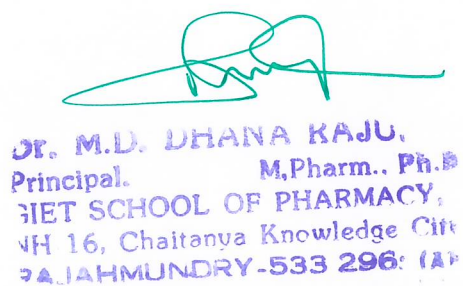 Dr. M.D. DHANA RAJU,
Principal. M,Pharm.. Ph.D
GIET SCHOOL OF PHARMACY,
NH 16, Chaitanya Knowledge City
RAJAHMUNDRY-533 296. (A)